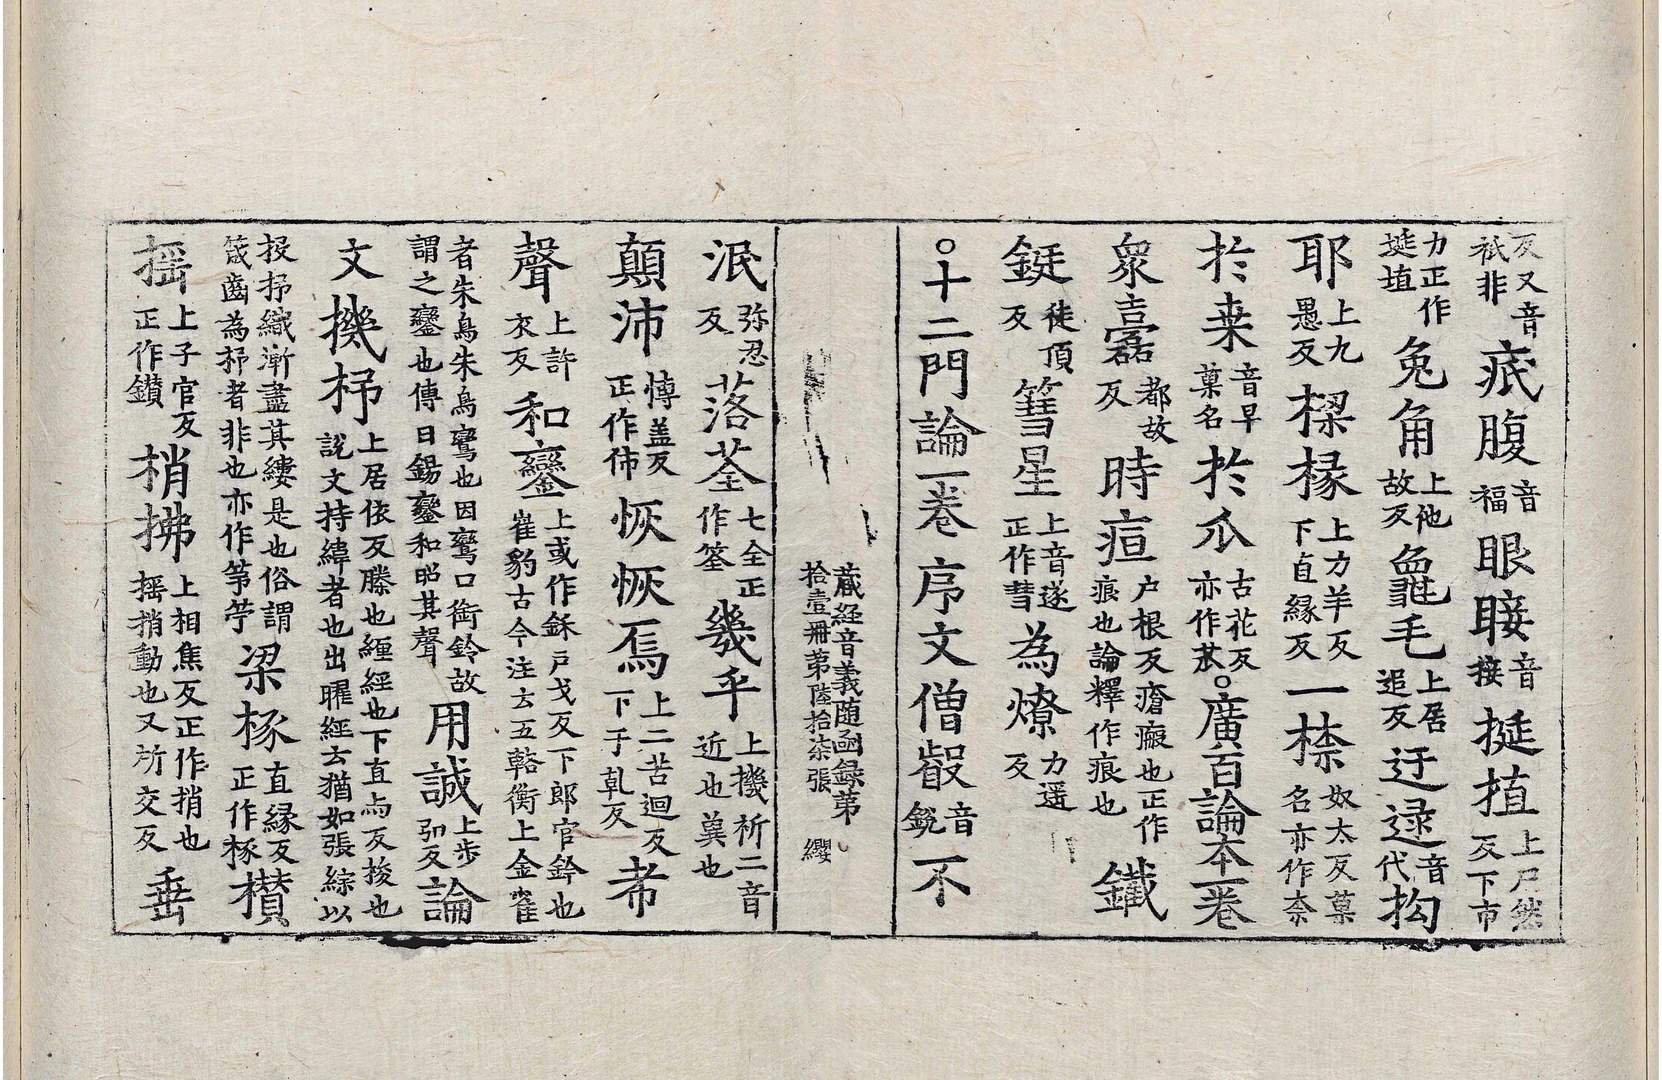 反又音祇非 疷腹音福 眼睫音接 挻埴上尸然反下市
力正作埏埴 兔角上他故反 龜毛上居追反 迂逯音代 抅
耶上九愚反 樑椽上力羊反下直緣反 一㮈奴太反菓名亦作柰
扵棗音早菓名 扵瓜古花反亦作苽○廣百論本一卷
衆蠹都故反 時痘户根反瘡瘢也正作痕也論釋作痕也 鐵
鋌徒頂反 篲星上音遂正作彗 為燎力遥反
○十二門論一卷 序文 僧叡音銳 不
蔵經音義随函録第拾壹冊第陸拾柒張 纓
泯弥忍反 落荃七全正作筌 幾乎上機祈二音近也冀也
顛沛博盖反正作㤄 恢恢焉上二苦迴反下于乹反 希
聲上許衣反 和鑾上或作龢戸戈反下郎官反鈴也崔豹古今注云五輅衡上金雀
者朱鳥朱鳥鸞也因鸞口銜鈴故謂之鑾也傳曰錫鑾和昭其聲 用誠上步引反 論
文 機杼上居依反縢也緾經也下直与反梭也說文持緯者也出曜經云猶如張綜以
投杼織漸盡其縷是也俗謂筬齒為杼者非也亦作䇡竽 梁椓直縁反正作椽 欑
揺上子官反正作鑽 梢拂上相焦反正作捎也揺捎動也又所交反 垂